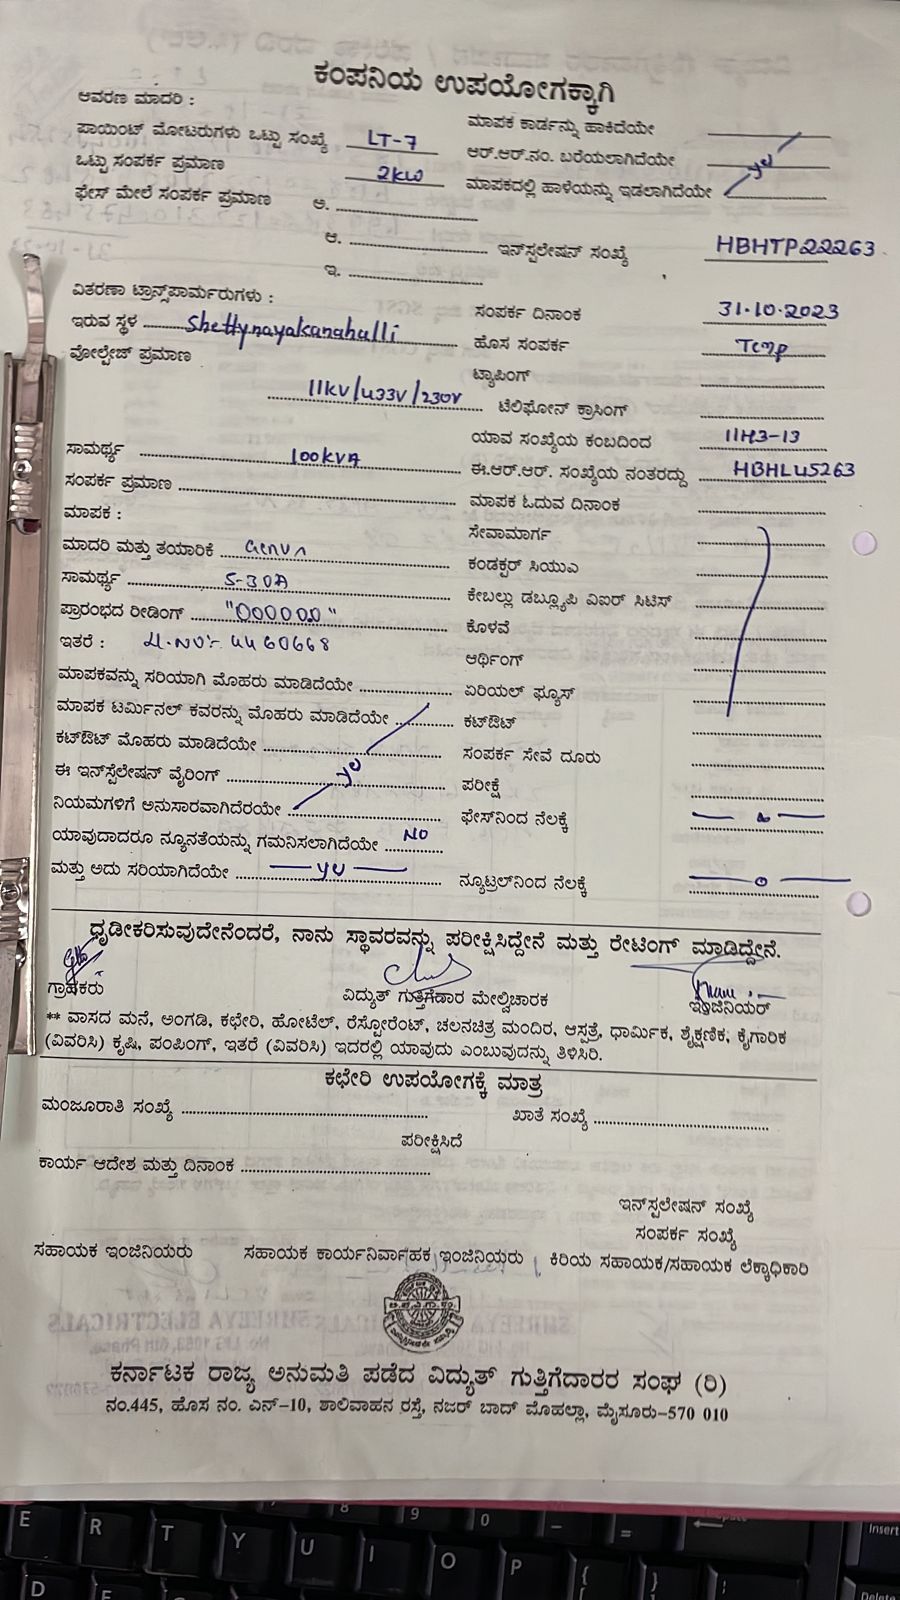 ಕಂಪನಿಯ ಉಪಯೋಗಕ್ಕಾಗಿ
ಆವರಣ ಮಾದರಿ :
ಮಾಪಕ ಕಾರ್ಡನ್ನು ಹಾಕಿದೆಯೇ
ಪಾಯಿಂಟ್ ಮೋಟರುಗಳು ಒಟ್ಟು ಸಂಖ್ಯೆ LT-7
ಆರ್.ಆರ್.ನಂ. ಬರೆಯಲಾಗಿದೆಯೇ
ಒಟ್ಟು ಸಂಪರ್ಕ ಪ್ರಮಾಣ 2KW
ಮಾಪಕದಲ್ಲಿ ಹಾಳೆಯನ್ನು ಇಡಲಾಗಿದೆಯೇ
ಫೇಸ್ ಮೇಲೆ ಸಂಪರ್ಕ ಪ್ರಮಾಣ ಅ.
ಆ. ಇನ್ಸ್ಟಲೇಷನ್ ಸಂಖ್ಯೆ HBHTP22263
ಇ.
ವಿತರಣಾ ಟ್ರಾನ್ಸ್‌ಪಾರ್ಮರುಗಳು :
ಸಂಪರ್ಕ ದಿನಾಂಕ 31.10.2023
ಇರುವ ಸ್ಥಳ Shettynayakanahalli ಹೊಸ ಸಂಪರ್ಕ Temp
ವೋಲ್ಟೇಜ್ ಪ್ರಮಾಣ ಟ್ಯಾಪಿಂಗ್
11KV/433V/230V ಟೆಲಿಫೋನ್ ಕ್ರಾಸಿಂಗ್
ಯಾವ ಸಂಖ್ಯೆಯ ಕಂಬದಿಂದ 11H3-13
ಸಾಮರ್ಥ್ಯ 100KVA ಈ.ಆರ್.ಆರ್. ಸಂಖ್ಯೆಯ ನಂತರದ್ದು HBHL45263
ಸಂಪರ್ಕ ಪ್ರಮಾಣ ಮಾಪಕ ಓದುವ ದಿನಾಂಕ
ಮಾಪಕ : ಸೇವಾಮಾರ್ಗ
ಮಾದರಿ ಮತ್ತು ತಯಾರಿಕೆ ಕಂಡಕ್ಟರ್ ಸಿಯುಎ
ಸಾಮರ್ಥ್ಯ 5-30A ಕೇಬಲ್ಲು ಡಬ್ಲ್ಯೂಪಿ ವಿಐರ್ ಸಿಟಿಸ್
ಪ್ರಾರಂಭದ ರೀಡಿಂಗ್ "000000" ಕೊಳವೆ
ಇತರೆ : 4460668 ಆರ್ಥಿಂಗ್
ಮಾಪಕವನ್ನು ಸರಿಯಾಗಿ ಮೊಹರು ಮಾಡಿದೆಯೇ ಏರಿಯಲ್ ಫ್ಯೂಸ್
ಮಾಪಕ ಟರ್ಮಿನಲ್ ಕವರನ್ನು ಮೊಹರು ಮಾಡಿದೆಯೇ ಕಟ್‌ಔಟ್
ಕಟ್‌ಔಟ್ ಮೊಹರು ಮಾಡಿದೆಯೇ ಸಂಪರ್ಕ ಸೇವೆ ದೂರು
ಈ ಇನ್ಸ್ಟಲೇಷನ್ ವೈರಿಂಗ್ ಪರೀಕ್ಷೆ
ನಿಯಮಗಳಿಗೆ ಅನುಸಾರವಾಗಿದೆರಯೇ ಫೇಸ್‌ನಿಂದ ನೆಲಕ್ಕೆ
ಯಾವುದಾದರೂ ನ್ಯೂನತೆಯನ್ನು ಗಮನಿಸಲಾಗಿದೆಯೇ NO
ಮತ್ತು ಅದು ಸರಿಯಾಗಿದೆಯೇ ನ್ಯೂಟ್ರಲ್‌ನಿಂದ ನೆಲಕ್ಕೆ
ಧೃಡೀಕರಿಸುವುದೇನೆಂದರೆ, ನಾನು ಸ್ಥಾವರವನ್ನು ಪರೀಕ್ಷಿಸಿದ್ದೇನೆ ಮತ್ತು ರೇಟಿಂಗ್ ಮಾಡಿದ್ದೇನೆ.
ಗ್ರಾಹಕರು ವಿದ್ಯುತ್ ಗುತ್ತಿಗೆದಾರ ಮೇಲ್ವಿಚಾರಕ ಇಂಜಿನಿಯರ್
** ವಾಸದ ಮನೆ, ಅಂಗಡಿ, ಕಛೇರಿ, ಹೋಟೆಲ್, ರೆಸ್ಟೋರೆಂಟ್, ಚಲನಚಿತ್ರ ಮಂದಿರ, ಆಸ್ಪತ್ರೆ, ಧಾರ್ಮಿಕ, ಶೈಕ್ಷಣಿಕ, ಕೈಗಾರಿಕ
(ವಿವರಿಸಿ) ಕೃಷಿ, ಪಂಪಿಂಗ್, ಇತರೆ (ವಿವರಿಸಿ) ಇದರಲ್ಲಿ ಯಾವುದು ಎಂಬುವುದನ್ನು ತಿಳಿಸಿರಿ.
ಕಛೇರಿ ಉಪಯೋಗಕ್ಕೆ ಮಾತ್ರ
ಮಂಜೂರಾತಿ ಸಂಖ್ಯೆ ಖಾತೆ ಸಂಖ್ಯೆ
ಪರೀಕ್ಷಿಸಿದೆ
ಕಾರ್ಯ ಆದೇಶ ಮತ್ತು ದಿನಾಂಕ
ಇನ್ಸ್ಟಲೇಷನ್ ಸಂಖ್ಯೆ
ಸಂಪರ್ಕ ಸಂಖ್ಯೆ
ಸಹಾಯಕ ಇಂಜಿನಿಯರು ಸಹಾಯಕ ಕಾರ್ಯನಿರ್ವಾಹಕ ಇಂಜಿನಿಯರು ಕಿರಿಯ ಸಹಾಯಕ/ಸಹಾಯಕ ಲೆಕ್ಕಾಧಿಕಾರಿ
ಕರ್ನಾಟಕ ರಾಜ್ಯ ಅನುಮತಿ ಪಡೆದ ವಿದ್ಯುತ್ ಗುತ್ತಿಗೆದಾರರ ಸಂಘ (ರಿ)
ನಂ.445, ಹೊಸ ನಂ. ಎನ್-10, ಶಾಲಿವಾಹನ ರಸ್ತೆ, ನಜರ್ ಬಾದ್ ಮೊಹಲ್ಲಾ, ಮೈಸೂರು-570 010
E R T Y U I O P
8 9 0
Insert
D
Delete